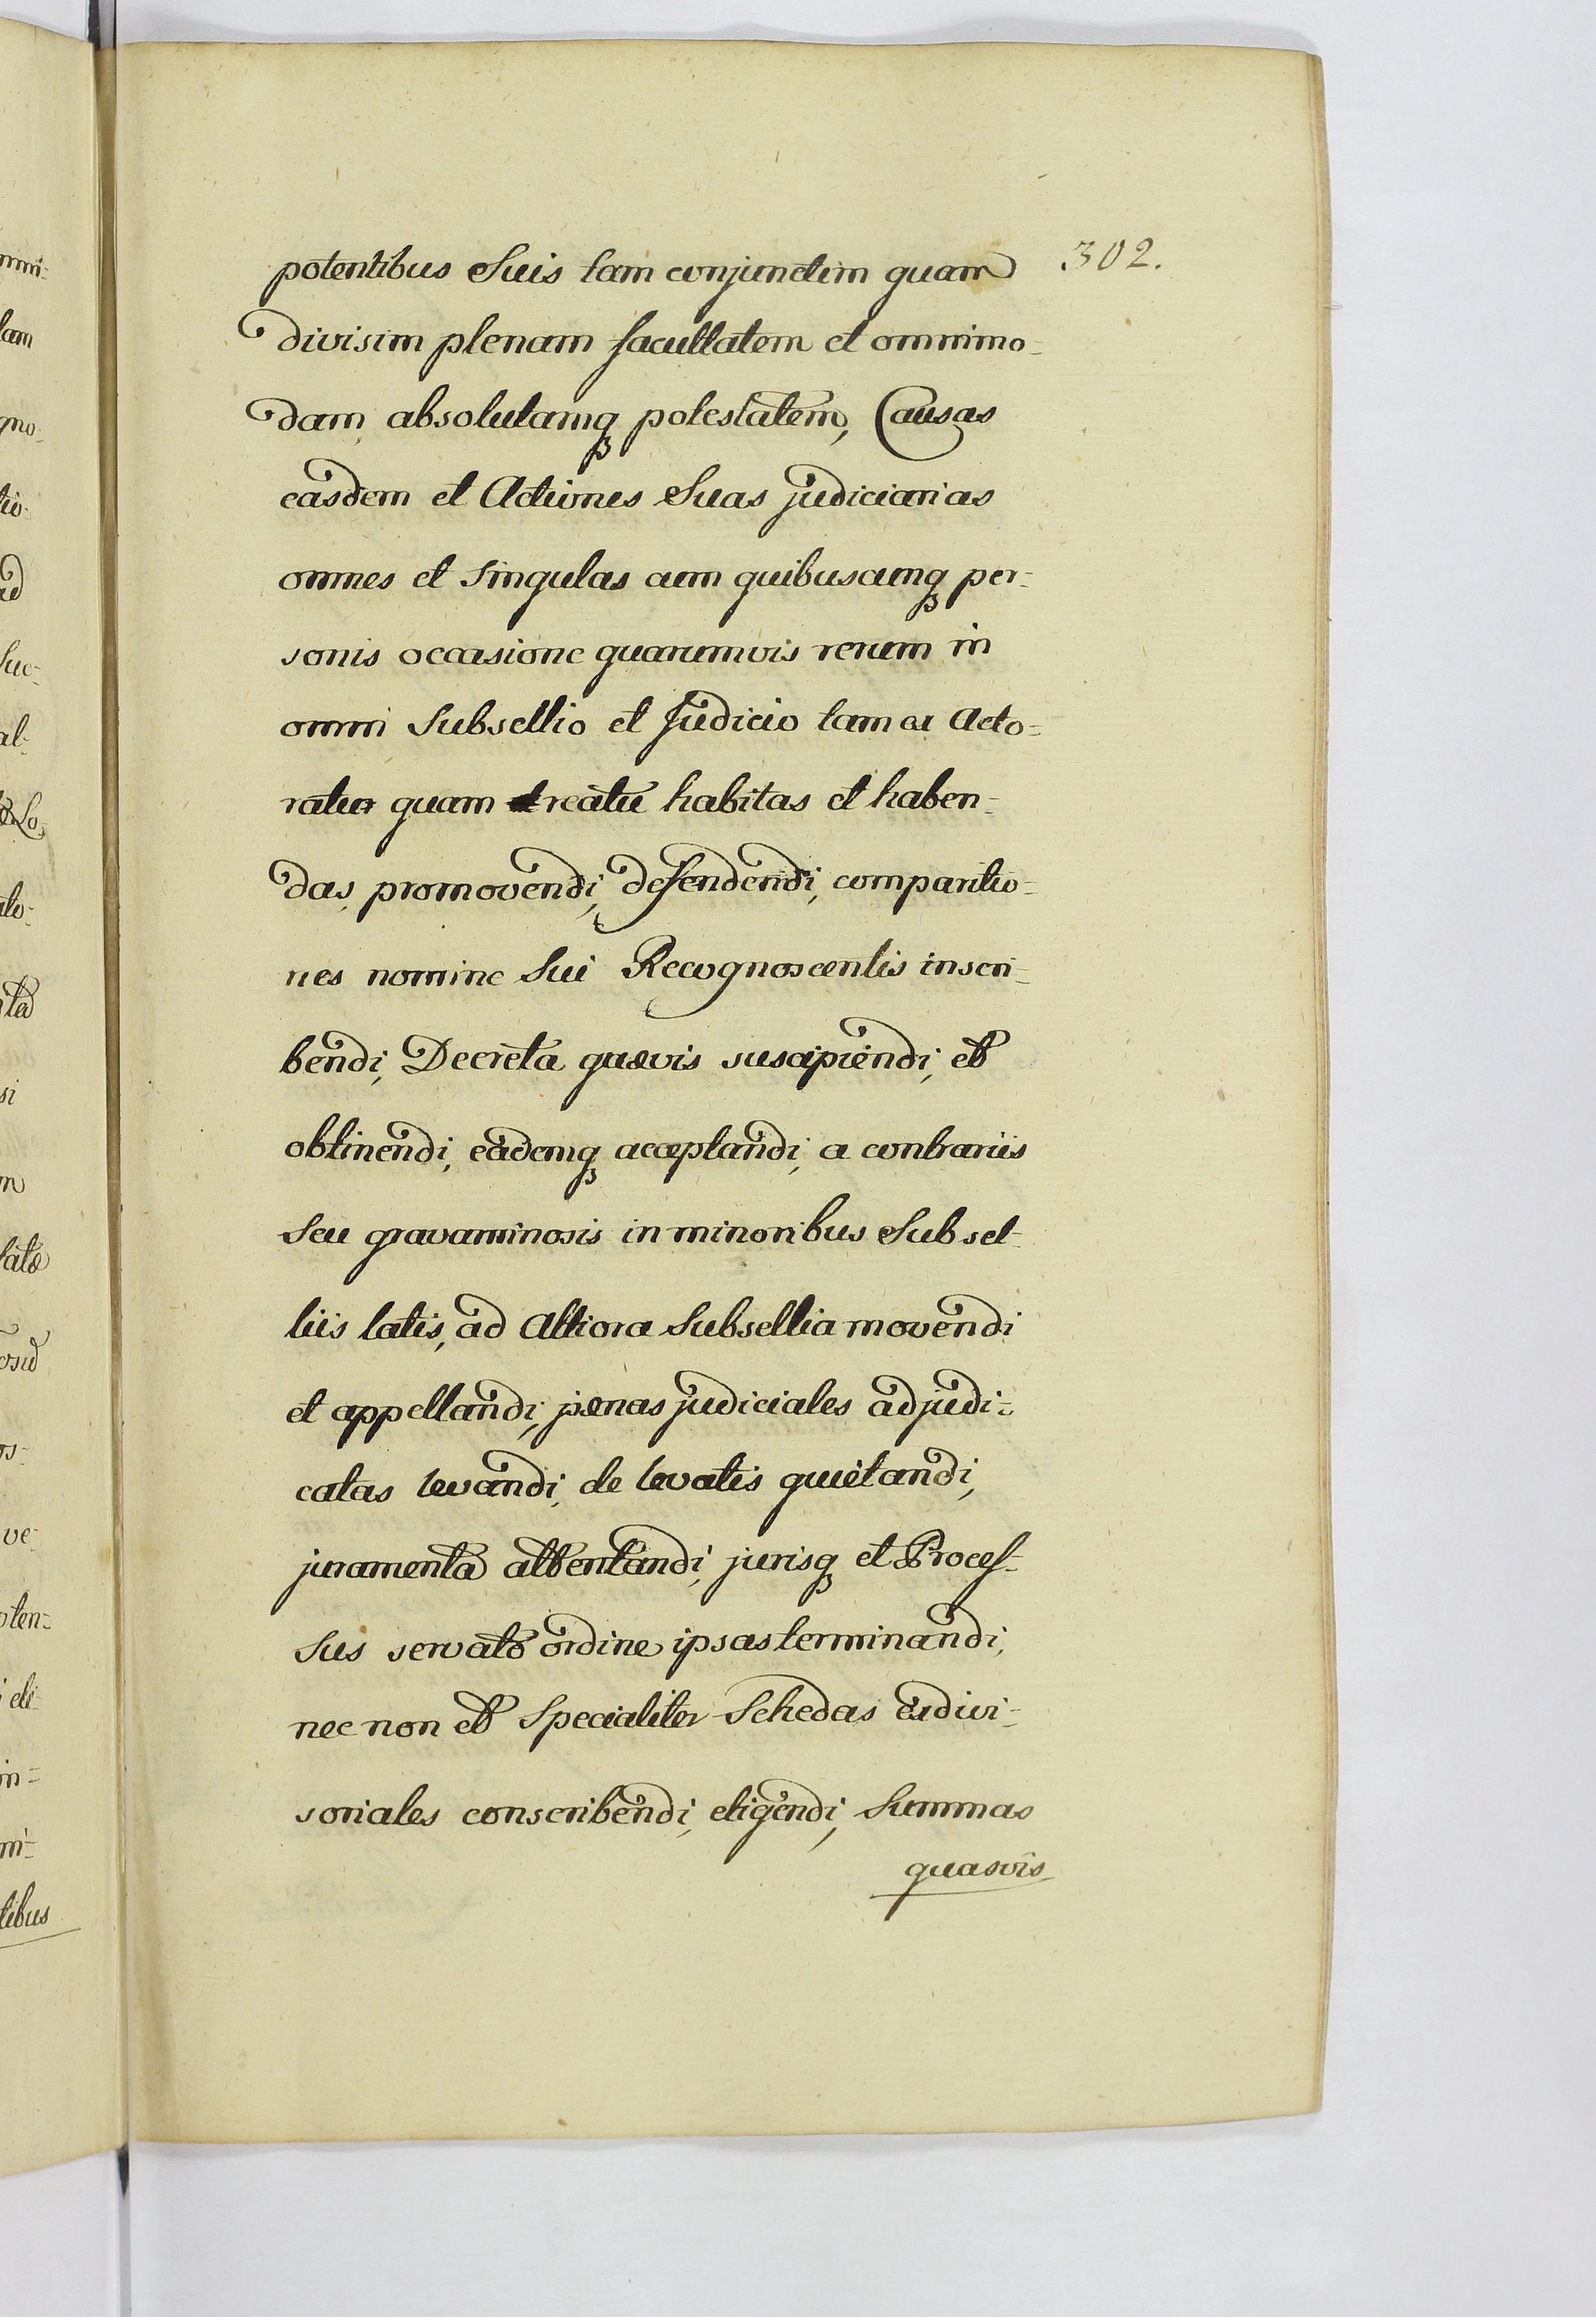 302.
potentibus Suis tam conjunctim quam
divisim plenam facultatem et omnimo-
dam, absolutamq potestatem, Causas
easdem et Actiones Suas judiciarias
omnes et singulas cum quibuscunq per-
sonis occasione quarumvis rerum in
omni Subsellio et Judicio tam ex Acto-
ratu quam reatu habitas et haben-
das, promovendi, defendendi, comparitio-
nes nomine Sui Recognoscentis inscri-
bendi, Decreta quaevis suscipiendi, et
obtinendi, eademq acceptandi, a contrariis
seu gravaminosis in minoribus Subsel-
liis latis, ad Altiora Subsellia movendi
et appellandi, pænas judiciales adjudi-
catas levandi, de levatis quietandi,
juramenta attentandi, jurisq et Proces-
sus servato ordine ipsas terminandi,
nec non et Specialiter Schedas exdivi-
soriales conscribendi, eligendi, Summas
quasvis